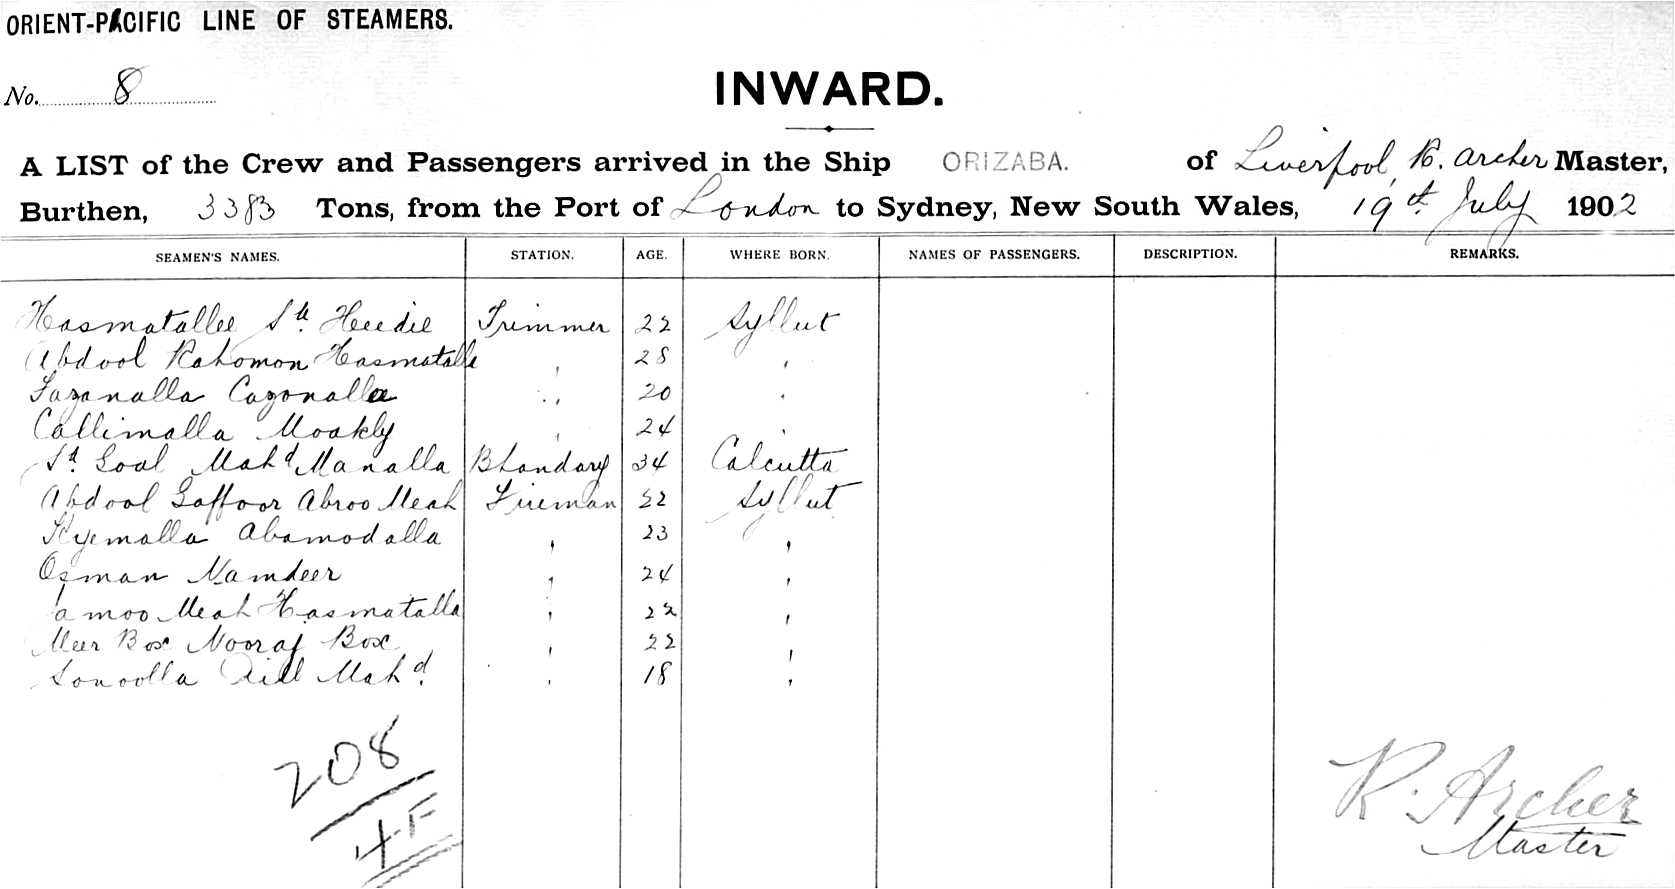 ORIENT-PACIFIC LINE OF STEAMERS.
No. 8
INWARD.
A LIST of the Crew and Passengers arrived in the Ship ORIZABA. of Liverpool, R. Archer Master,
Burthen, 3383 Tons, from the Port of London to Sydney, New South Wales, 19th July 1902
SEAMEN'S NAMES. STATION. AGE. WHERE BORN. NAMES OF PASSENGERS. DESCRIPTION. REMARKS.
Hasmatallee Sk. Heedie Trimmer 22 Syllut
Abdool Rahomon Hasmatalla , 28 ,
Fazanalla Cazonalla , 20 ,
Callimalla Moakly , 24 ,
Sk. Goal Mahd Manalla Bhandary 34 Calcutta
Abdool Gaffoor Abroo Meah Fireman 22 Syllut
Kyemalla Abamodalla , 23 ,
Osman Namdeer , 24 ,
amoo Meah Hasmatalla , 22 ,
Meer Box Nooraj Box , 22 ,
Sonoolla Dill Mahd. , 18 ,
208
4F
R. Archer
Master